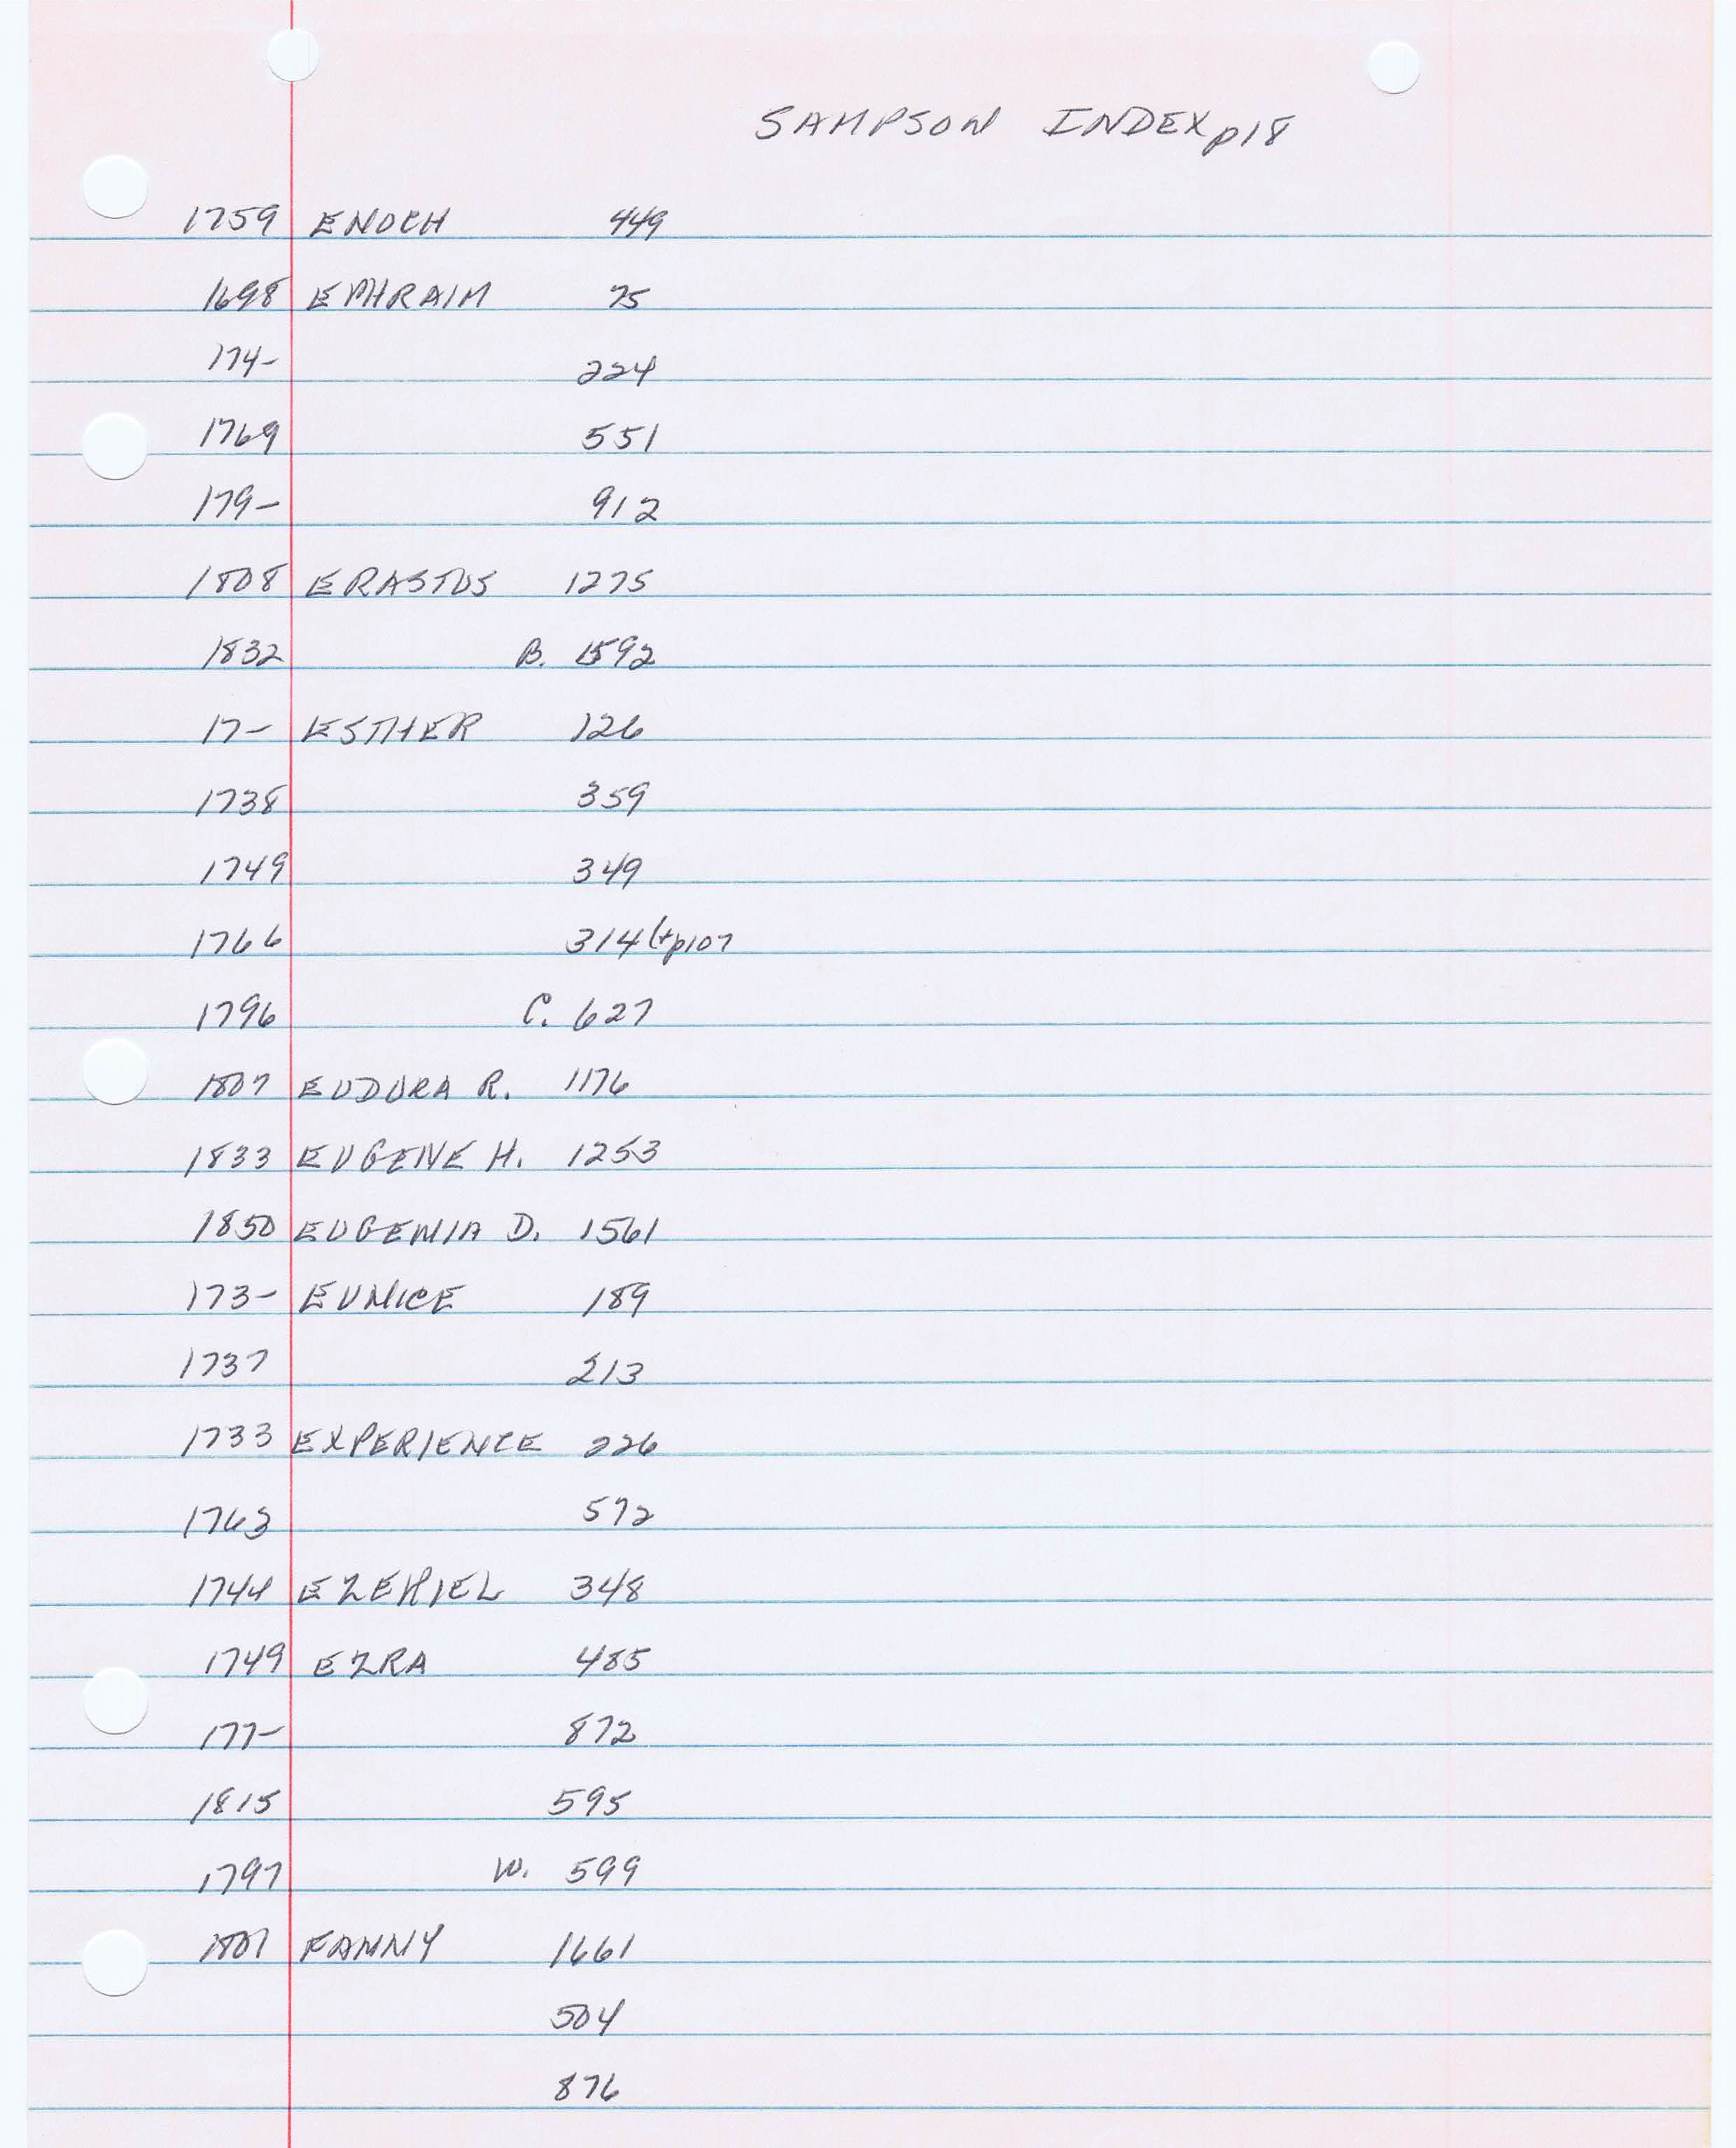 SAMPSON INDEX p18
1759 ENOCH 449
1698 EPHRAIM 75
174- 224
1769 551
179- 912
1808 ERASTUS 1275
1832 B. 1592
17- ESTHER 126
1738 359
1749 349
1766 314 (+p107
1796 C. 627
1807 EUDORA R. 1176
1833 EUGENE H. 1253
1850 EUGENIA D. 1561
173- EUNICE 189
1737 213
1733 EXPERIENCE 226
1763 572
1744 EZEKIEL 348
1749 EZRA 485
177- 872
1815 595
1797 W. 599
1807 FANNY 1661
504
876